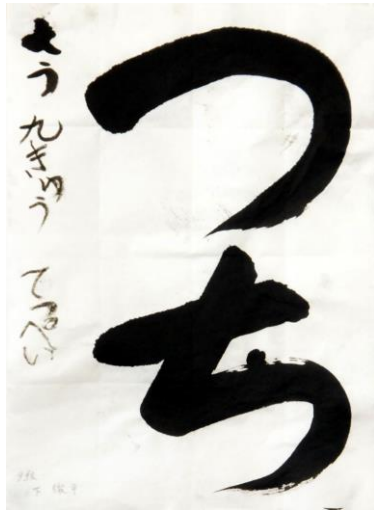 つち
よう 九きゅう てっぺい